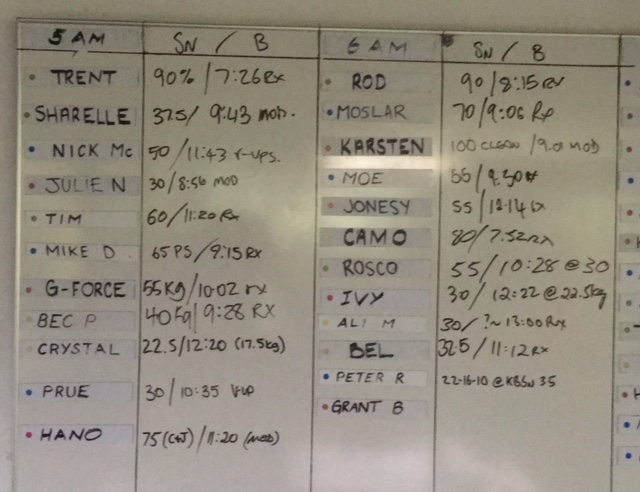 5 AM SN / B
TRENT 90% / 7:26 RX
SHARELLE 37.5 / 9:43 MOD.
NICK Mc 50 / 11:43 V-UPS.
JULIE N 30 / 8:56 MOD
TIM 60 / 11:20 RX
MIKE D 65 PS / 9:15 RX
G-FORCE 55KG / 10:02 RX
BEC P 40 Kg / 9:28 RX
CRYSTAL 22.5 / 12:20 (17.5kg)
PRUE 30 / 10:35 V-UP
HANO 75 (C&J) / 11:20 (MOD)
6 AM SN / B
ROD 90 / 8:15 RX
MOSLAR 70 / 9:06 RX
KARSTEN 100 CLEAN / 9:01 MOD
MOE 55 /
JONESY 55 / 12:14 RX
CAMO 80 / 7:52 RX
ROSCO 55 / 10:28 @ 30
IVY 30 / 12:22 @ 22.5kg
ALI M 30 / ? ~ 13:00 RX
BEL 32.5 / 11:12 RX
PETER R @ KBSN 35
GRANT B